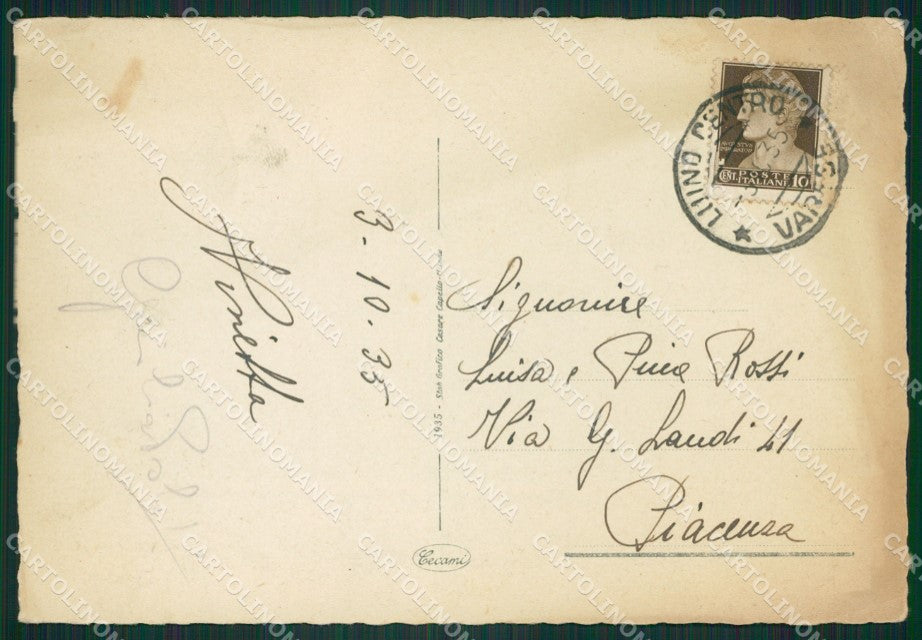 Ninetta
3-10-35
1935 - Stab Grafico Cesare Capello-Milano
Cecami
LUINO CENTRO VARESE
AVGVSTVS
IMPERATOR
CENT. POSTE 10
ITALIANE
Signorine
Luisa e Pina Rossi
Via G. Landi 41
Piacenza
CARTOLINOMANIA